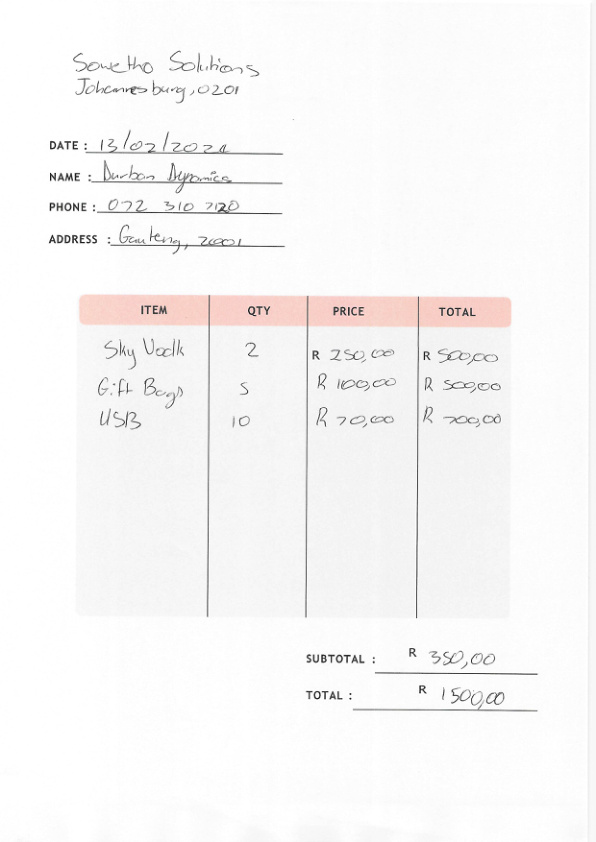 Sowetho Solutions
Johannesburg, 0201
DATE : 13/02/2021
NAME : Durban Dynamics
PHONE : 072 310 7120
ADDRESS : Gauteng, 20001
ITEM QTY PRICE TOTAL
Sky Vodk 2 R 250,00 R 500,00
Gift Bags 5 R 100,00 R 500,00
USB 10 R 70,00 R 700,00
SUBTOTAL : R 350,00
TOTAL : R 1500,00